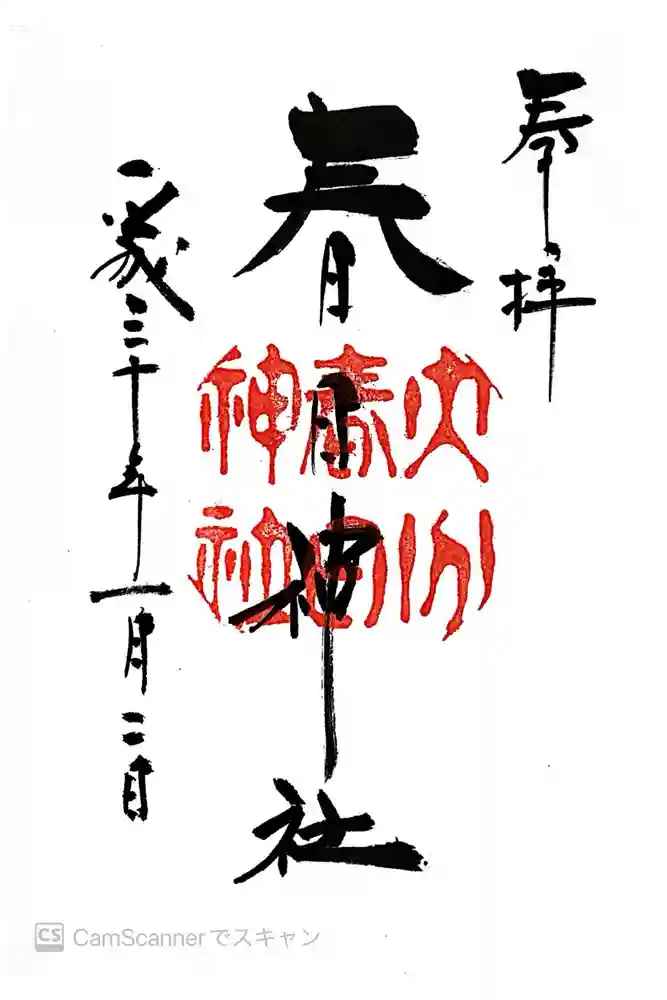 奉拝
春日神社
大分
春日
神社
平成三十年一月二日
CS CamScannerでスキャン